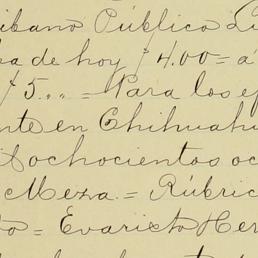 ribano Público Lu
ba de hoy $4.00 = á
$5.,, = Para los ef
nte en Chihuahu
ochocientos oc
Meza. = Rúbric
to = Evaristo Her